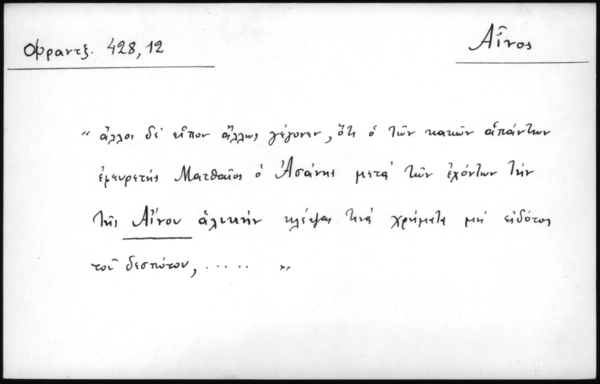 Φραντζ. 428,12
Αἶνος
“ ἄλλοι δὲ εἶπον ἄλλως γέγονεν, ὅτι ὁ τῶν κακῶν ἁπάντων
ἐφευρετής Ματθαῖος ὁ Ἀσάνης μετὰ τῶν ἐχόντων τὴν
τῆς Αἴνου ἁλικὴν κλέψαι τινὰ χρήματα μὴ εἰδότος
τοῦ δεσπότου, ..... ”